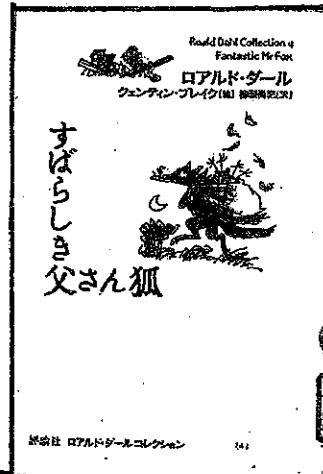 Roald Dahl Collection 4
Fantastic Mr Fox
ロアルド・ダール
クェンティン・ブレイク[絵] 柳瀬尚紀[訳]
すばらしき
父さん狐
評論社 ロアルド・ダールコレクション